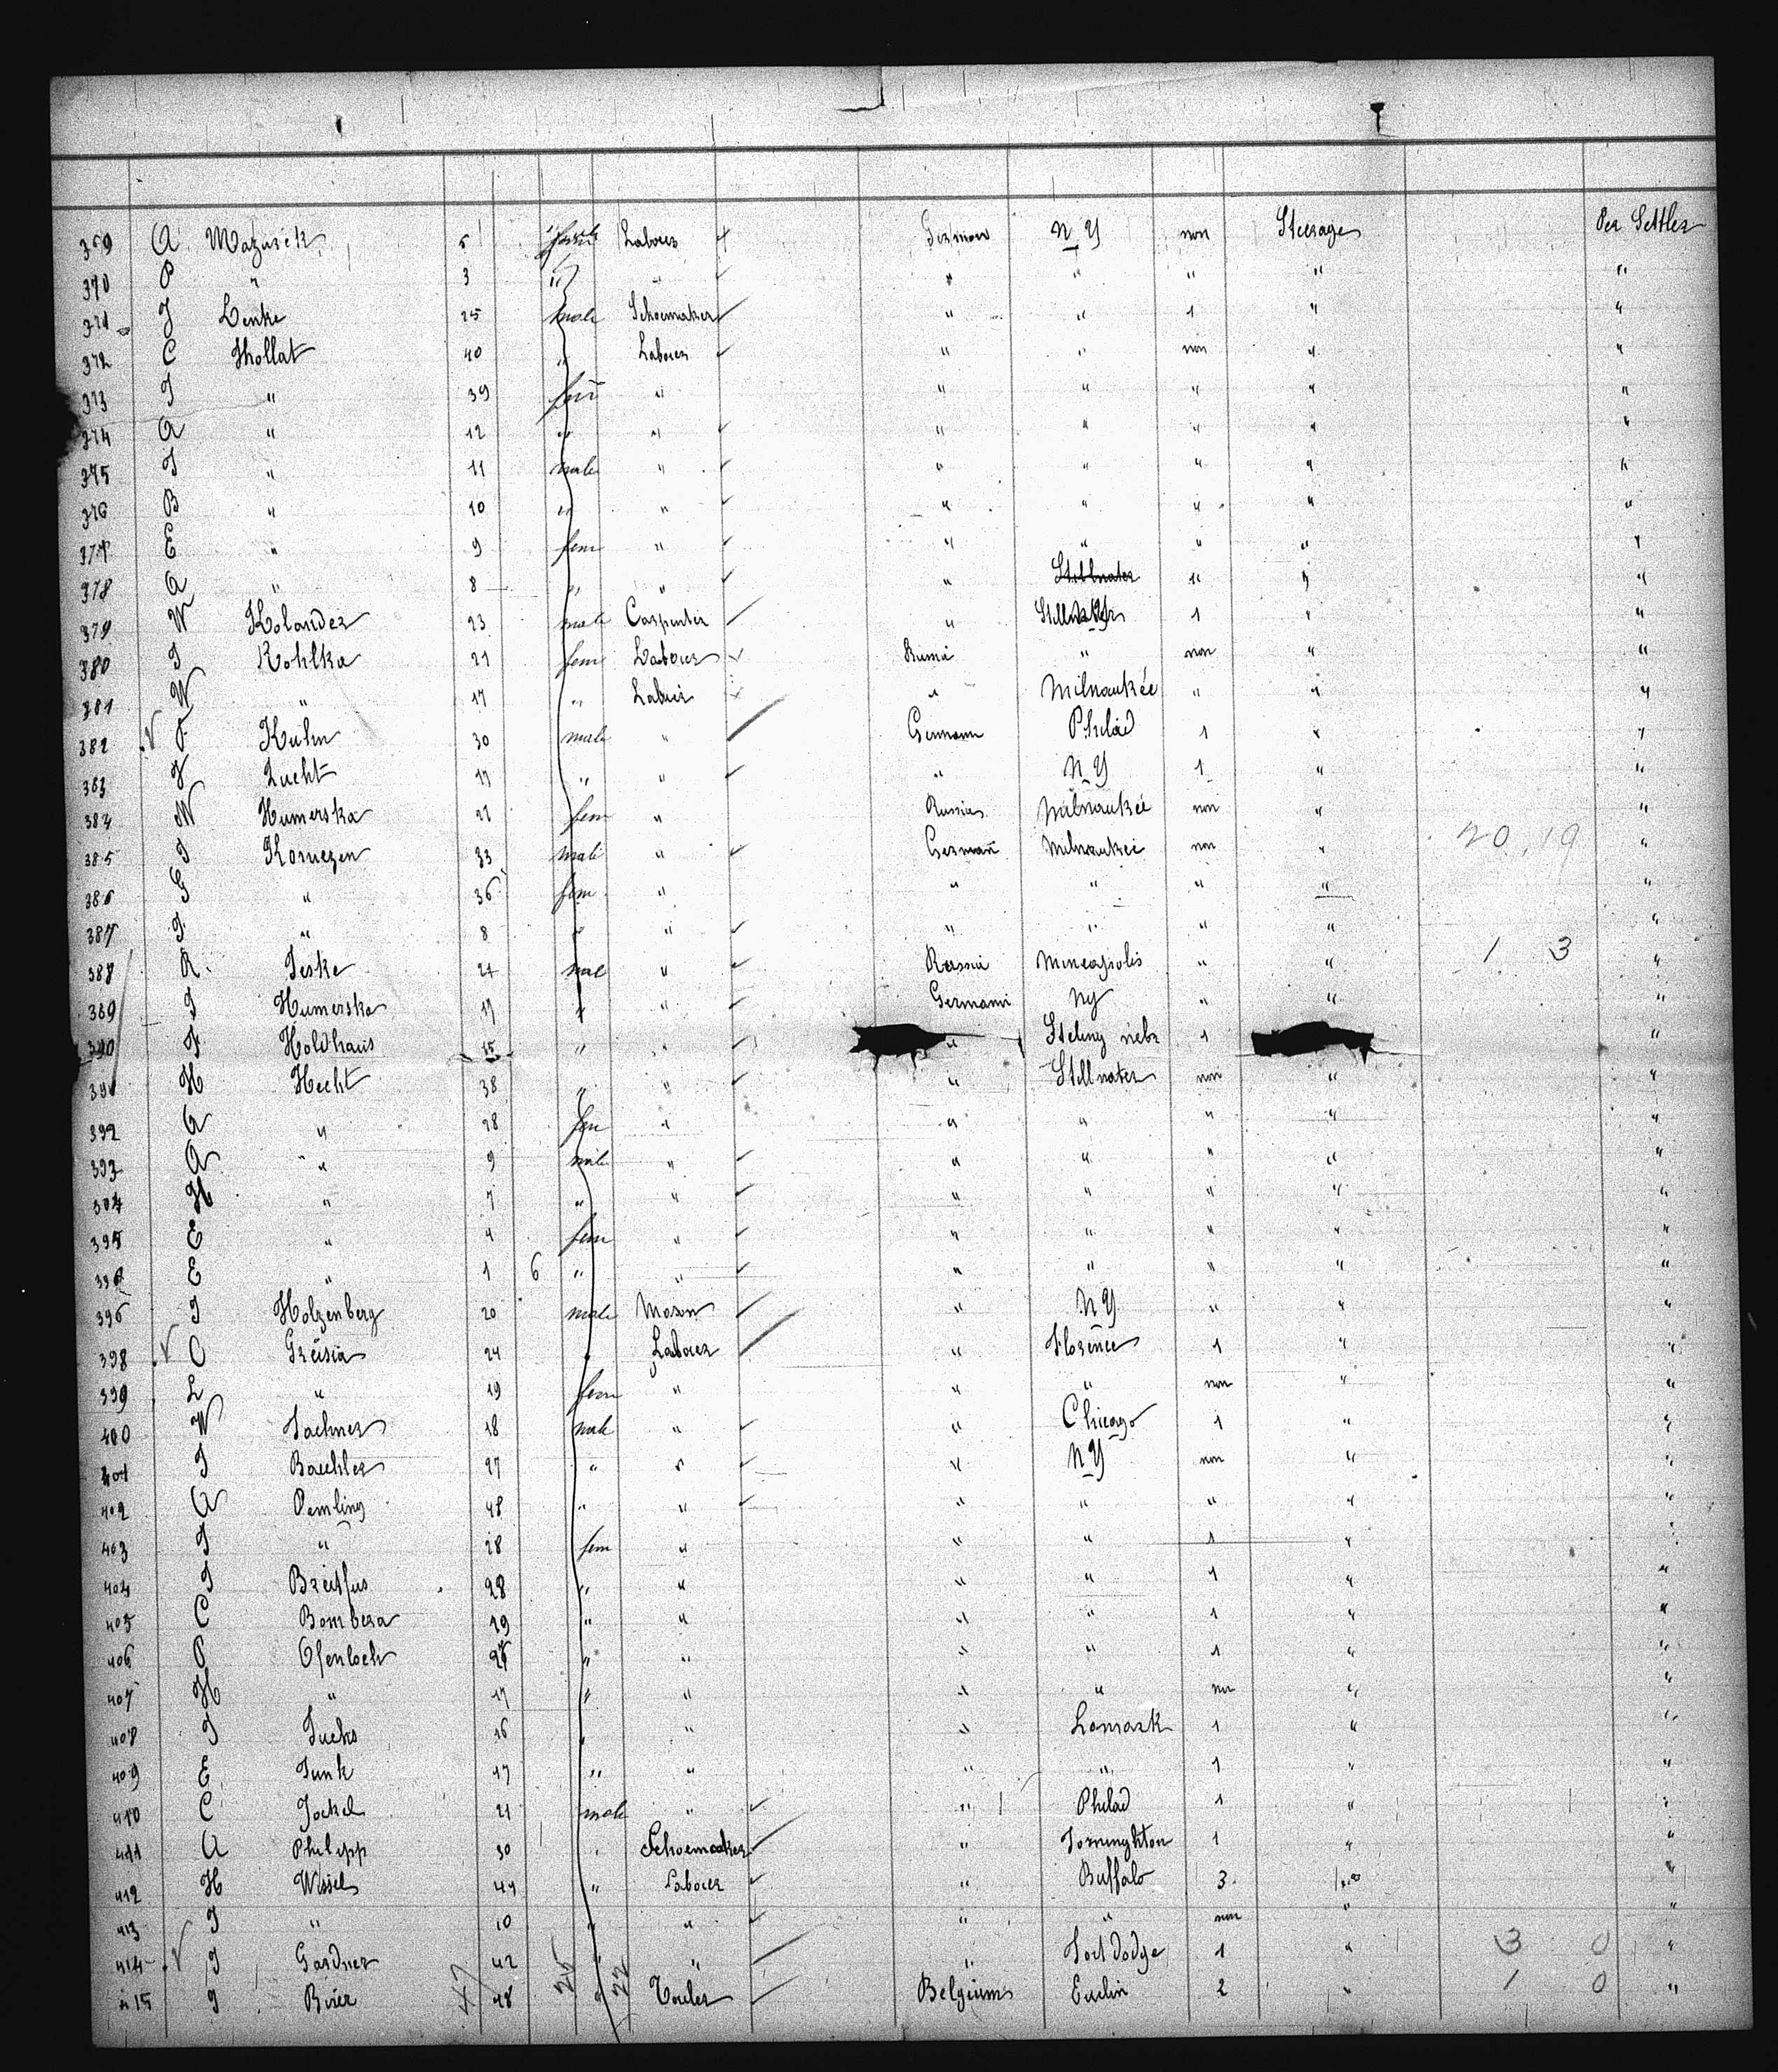 369 A Mazurek 5 fem Labour German N Y non Steerage Per Settler
370 P " 3 " " " " " " "
371 J Lenke 25 male Schoemaker " " 1 " "
372 C Thollat 40 " Labour " " non " "
373 T " 39 fem " " " " " "
374 A " 12 " " " " " " "
375 T " 11 male " " " " " "
376 B " 10 " " " " " " "
377 E " 9 fem " " " " " "
378 A " 8 " " " Stillwater " " "
379 W Kolander 23 male Carpenter " 1 " "
380 J Kohlka 21 fem Labour " non " "
381 W " 17 " Labour " Milwaukée " " "
382 F Kuhn 30 male " Germann Philad 1 " "
383 F Lucht 17 " " " N Y 1 " "
384 W Humerska 21 fem " Russia Milwaukée non " "
385 J Kornezen 33 male " German Milwaukee non " 20.19 "
386 G " 36 fem " " " " " "
387 J " 8 " " " " " " "
388 R Teske 24 mal " Russia Mineapolis " " 1 3 "
389 J Humerska 17 " " Germanni Ny " " "
390 F Holdhaus 15 " " " Steling nebr 1 "
391 H Hecht 38 " " " Stillwater non " "
392 A " 28 fem " " " " " "
393 A " 9 male " " " " " "
394 H " 7 " " " " " " "
395 E " 4 fem " " " " " "
E " 1 6 " " " " " " "
396 J Holzenberg 20 male Mason " N Y " " "
398 O Greisia 24 " Labour " Florence 1 " "
399 L " 19 fem " " " non " "
400 W Lachner 18 male " " Chicago 1 " "
401 J Baechler 27 " " " N Y non " "
402 A Pemling 48 " " " " " " "
403 J " 28 fem " " " 1 " "
404 J Breitfus 28 " " " " 1 " "
405 C Bombera 19 " " " " 1 " "
406 P Ofenloch " " " " 1 " "
407 H " 17 " " " " non " "
408 J Fuchs 16 " " " Lamark 1 " "
409 E Funk 17 " " " " 1 " "
410 C Jockel 21 male " " Philad 1 " "
411 A Philipp 30 " Schoemaker " Torninghton 1 " "
412 H Wissel 41 " Labour " Buffalo 3 " "
413 J " 10 " " " " non " "
414 J Gardner 42 " " " Fort dodge 1 " 3 0 "
415 J Birer 47 48 25 22 Belgium Euclin 2 " 1 0 "